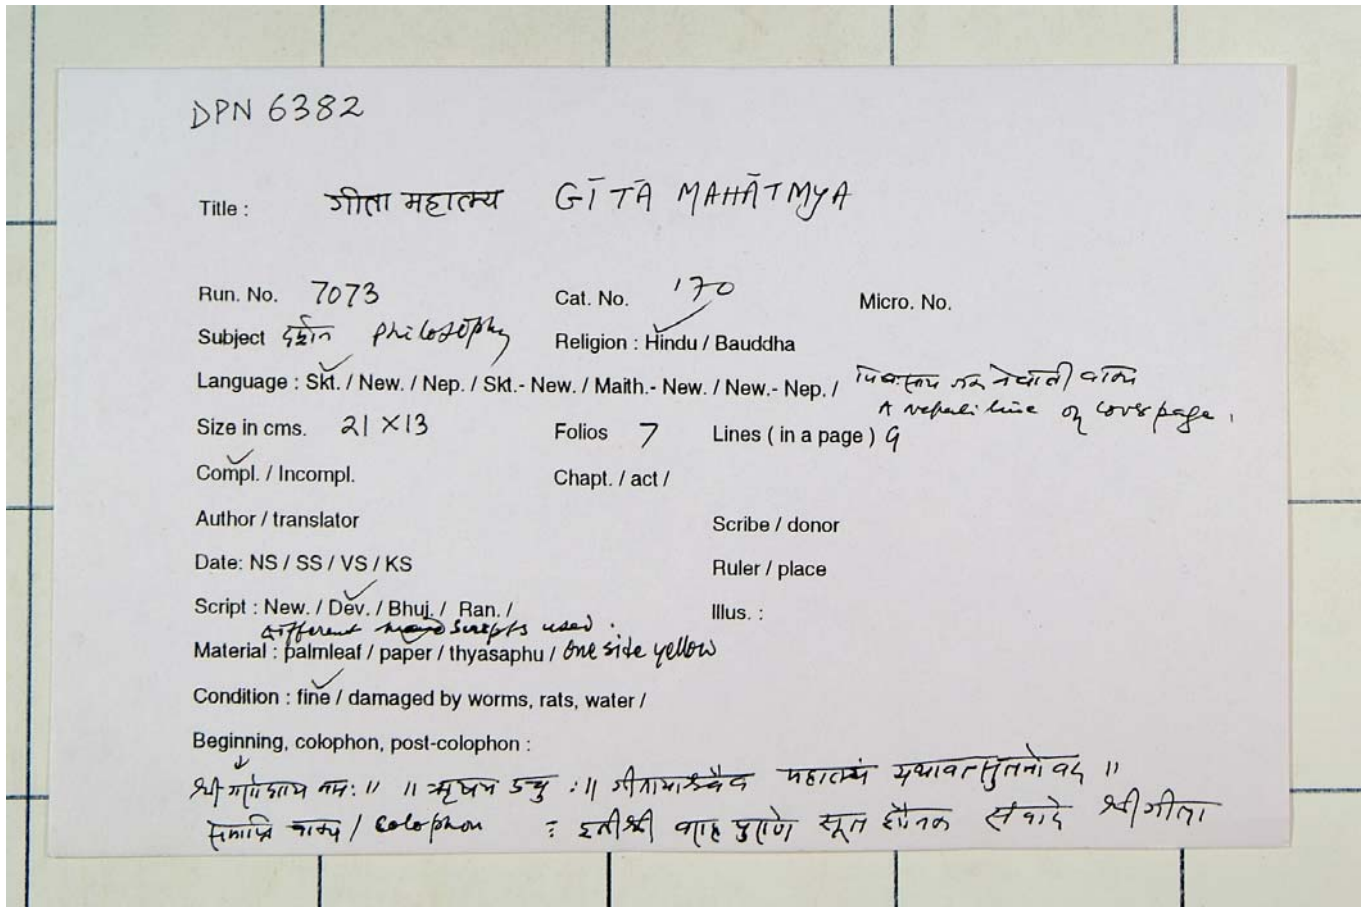 DPN 6382
Title : गीता महात्म्य GĪTĀ MAHĀTMYA
Run. No. 7073 Cat. No. 170 Micro. No.
Subject दर्शन Philosophy Religion : Hindu / Bauddha
Language : Skt. / New. / Nep. / Skt.- New. / Maith.- New. / New.- Nep. /
A nepali line on cover page.
Size in cms. 21 X13 Folios 7 Lines ( in a page ) 9
Compl. / Incompl. Chapt. / act /
Author / translator Scribe / donor
Date: NS / SS / VS / KS Ruler / place
Script : New. / Dev. / Bhuj. / Ran. / Illus. :
different scripts used.
Material : palmleaf / paper / thyasaphu / one side yellow
Condition : fine / damaged by worms, rats, water /
Beginning, colophon, post-colophon :
श्री गणेशाय नमः॥ ॥ ऋषय उचु :॥ गीतायाश्चैव महात्म्यं यथावत्सुतमो वद ॥
समाप्ति वाक्य / Colophon : इतीश्री वाराह पुराणे सूत शौनक संवादे श्री गीता